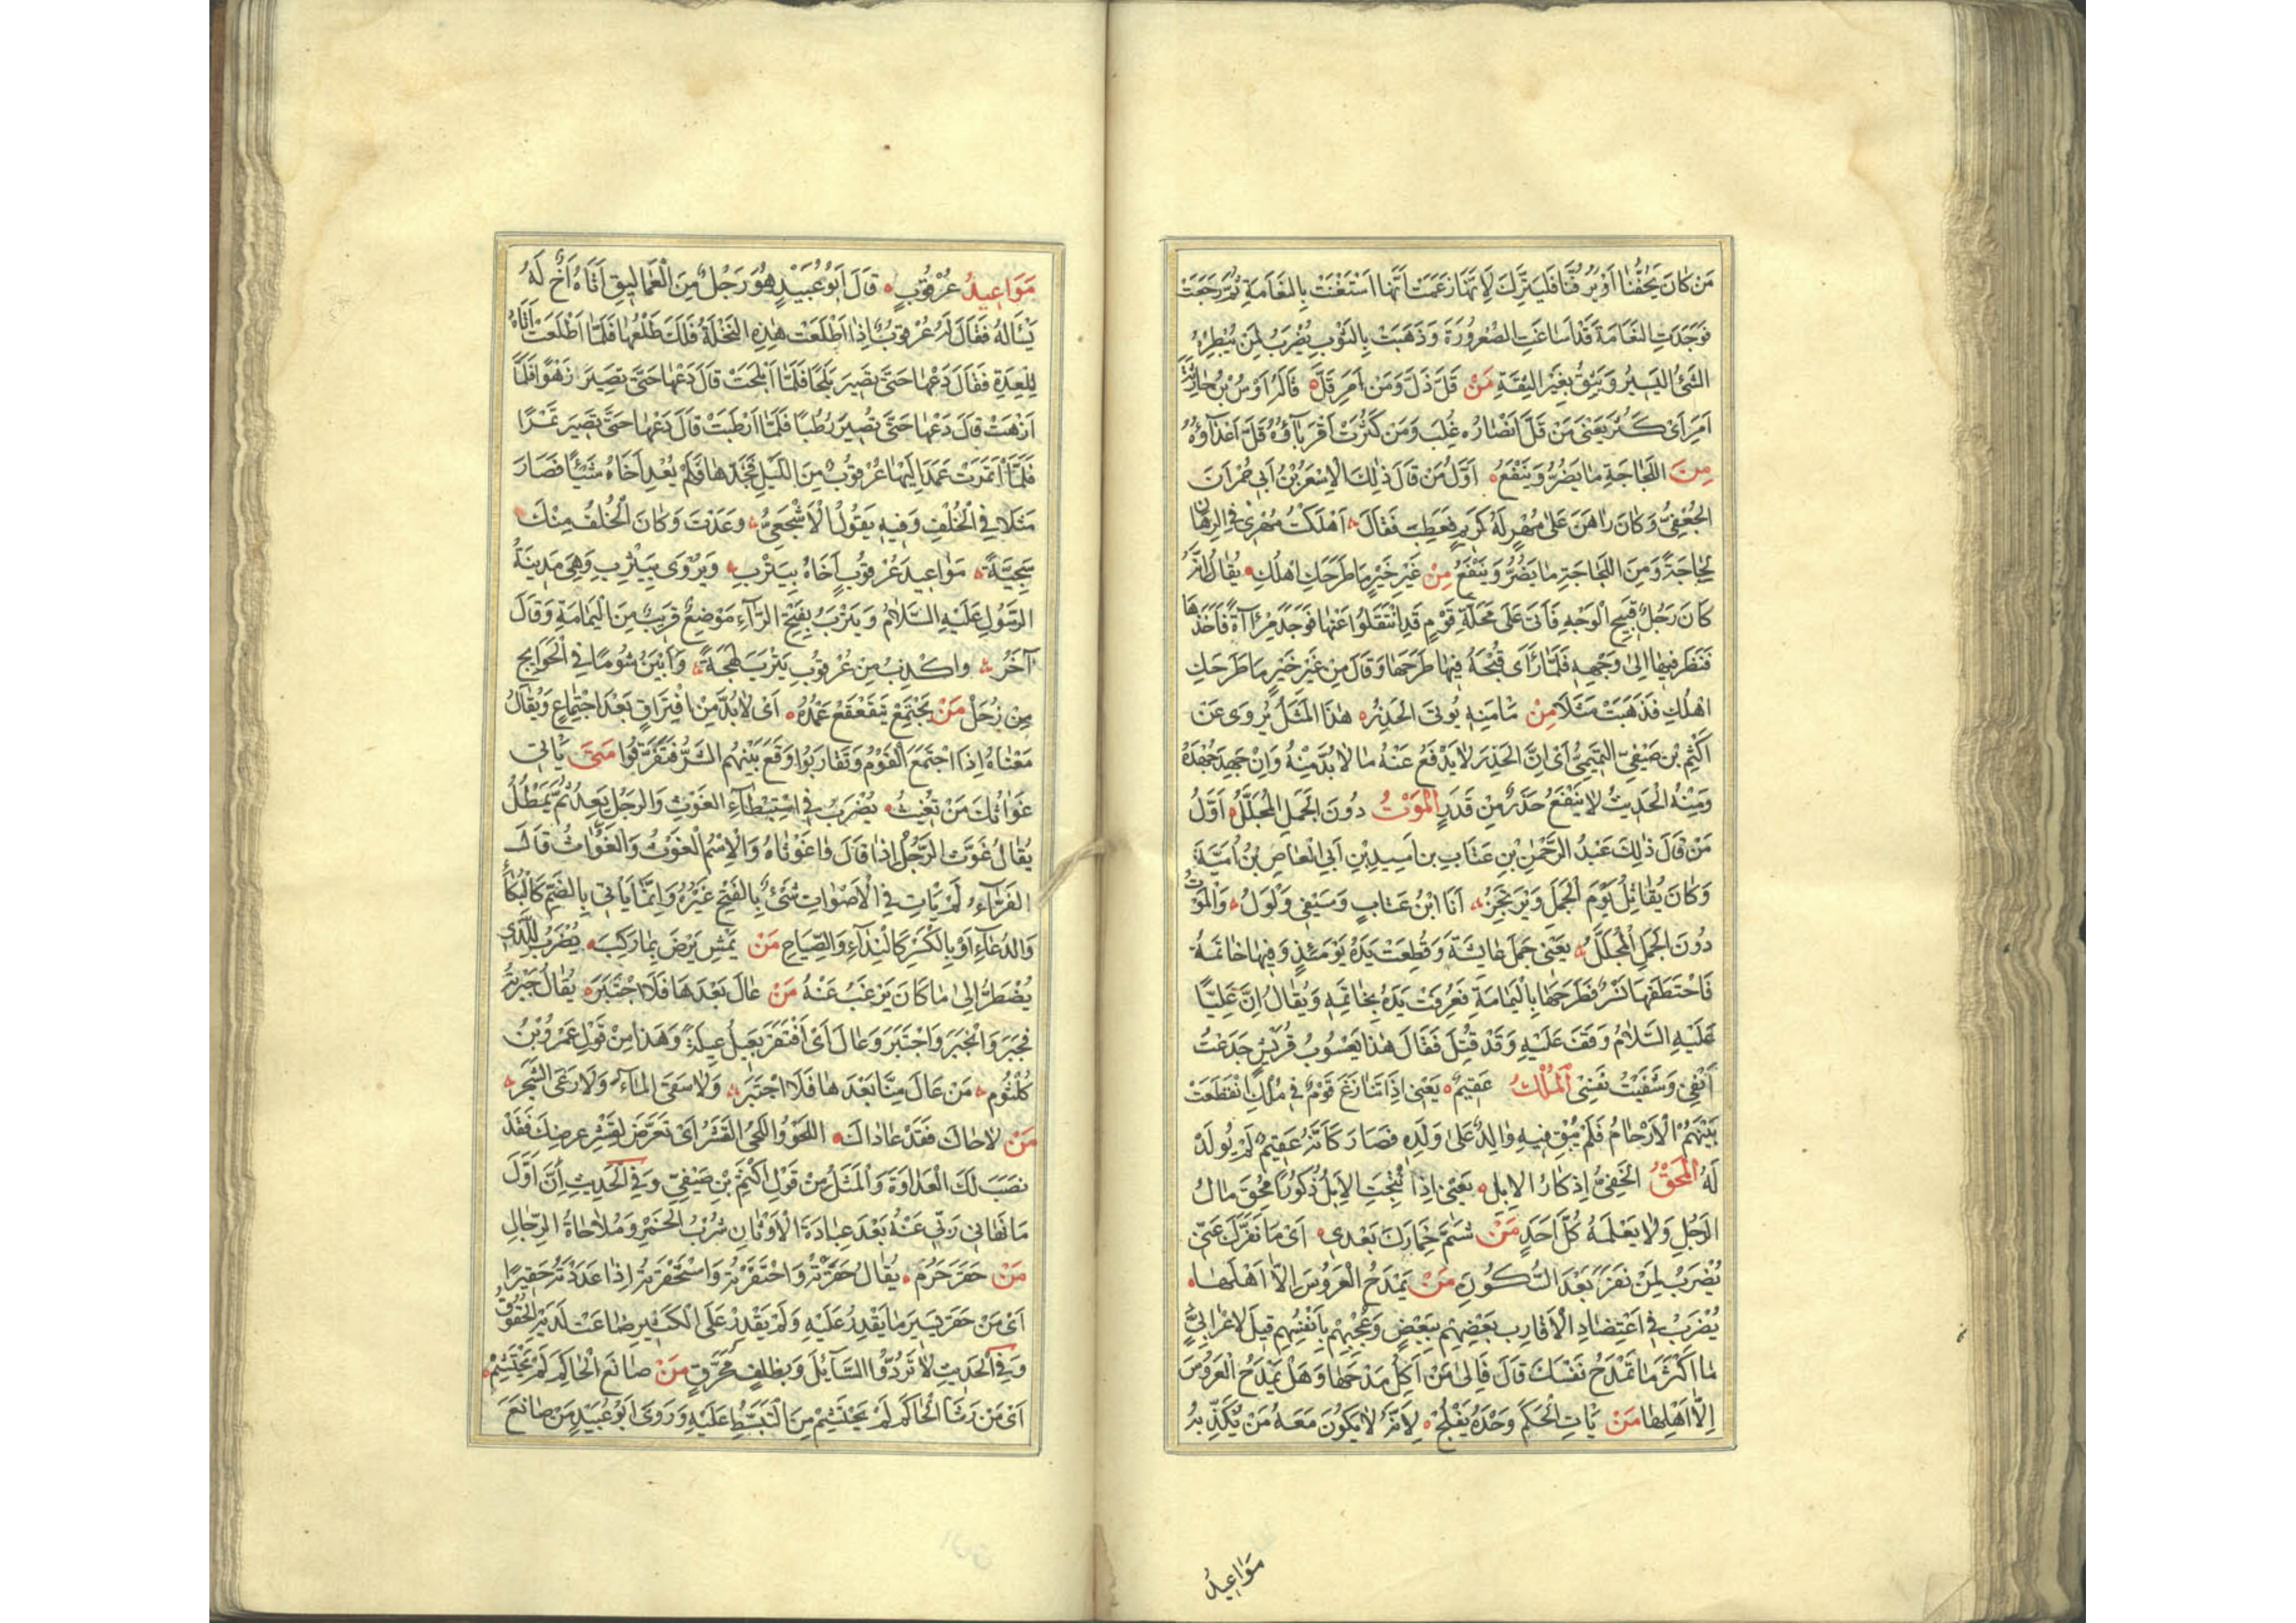 مَنْ كَانَ يَحُفُّنَا اَوْ يَرُفُّنَا فَلْيَتَّرِكْ لِاَنَّهَا زَعَمَتْ اَنَّهَا اسْتَغْنَتْ بِالنَّعَامَةِ ثُمَّ رَجَعَتْ
فَوَجَدَتِ النَّعَامَةَ قَدْ اَسَاغَتِ الصُّعْرُورَةَ وَذَهَبَتْ بِالثَّوْبِ يُضْرَبُ لِمَنْ يُبْطِرُهُ
الشَّيْءُ الْيَسِيْرُ وَيَثِقُ بِغَيْرِ الثِّقَةِ مَنْ قَلَّ ذَلَّ وَمَنْ اَمِرَ فَلَّ قَالَهُ اَوْسُ بْنُ حَارِثَةَ
اَمِرَ اَىْ كَثُرَ يَعْنِى مَنْ قَلَّ اَنْصَارُهُ غُلِبَ وَمَنْ كَثُرَتْ اَقْرِبَآؤُهُ قَلَّ اَعْدَآؤُهُ
مِنَ اللَّجَاجَةِ مَا يَضُرُّ وَيَنْفَعُ اَوَّلُ مَنْ قَالَ ذٰلِكَ الْاَسْعَرُ بْنُ اَبِي حُمْرَانَ
الْجُعْفِىُّ وَكَانَ رَاهَنَ عَلٰى مُهْرٍ لَهُ كَرِيمٍ فَعَطِبَ فَقَالَ اَهْلَكْتُ مُهْرِى فِي الرِّهَانِ
لَجَاجَةً وَمِنَ اللَّجَاجَةِ مَا يَضُرُّ وَيَنْفَعُ مِنْ غَيْرِ خَيْرٍ مَا طَرَحَكِ اَهْلُكِ يُقَالُ اِنَّهُ
كَانَ رَجُلٌ قَبِيحُ الْوَجْهِ فَاَتٰى عَلٰى مَحَلَّةِ قَوْمٍ قَدِ انْتَقَلُوا عَنْهَا فَوَجَدَ مِرْآةً فَاَخَذَهَا
فَنَظَرَ فِيهَا اِلٰى وَجْهِهِ فَلَمَّا رَأٰى قُبْحَهُ فِيهَا طَرَحَهَا وَقَالَ مِنْ غَيْرِ خَيْرٍ مَا طَرَحَكِ
اَهْلُكِ فَذَهَبَتْ مَثَلًا مِنْ مَأْمَنِهِ يُؤْتَى الْحَذِرُ هٰذَا الْمَثَلُ يُرْوَى عَنْ
اَكْثَمَ بْنِ صَيْفِىٍّ التَّمِيمِىِّ اَىْ اِنَّ الْحَذَرَ لَا يَدْفَعُ عَنْهُ مَا لَا بُدَّ مِنْهُ وَاِنْ جَهَدَ جُهْدَهُ
وَمِنْهُ الْحَدِيثُ لَا يَنْفَعُ حَذَرٌ مِنْ قَدَرٍ الْمَوْتُ دُونَ الْجَمَلِ الْمُجَلَّلِ اَوَّلُ
مَنْ قَالَ ذٰلِكَ عَبْدُ الرَّحْمٰنِ بْنِ عَتَّابِ بْنِ اَسِيدِ بْنِ اَبِى الْعَاصِ بْنِ اُمَيَّةَ
وَكَانَ يُقَاتِلُ يَوْمَ الْجَمَلِ وَيَرْتَجِزُ اَنَا ابْنُ عَتَّابٍ وَسَيْفِي وَلْوَلُ وَالْمَوْتُ
دُونَ الْجَمَلِ الْمُجَلَّلِ يَعْنِى جَمَلَ عَائِشَةَ وَقُطِعَتْ يَدُهُ يَوْمَئِذٍ وَفِيهَا خَاتَمُهُ
فَاخْتَطَفَهَا نَسْرٌ فَطَرَحَهَا بِالْيَمَامَةِ فَعُرِفَتْ يَدُهُ بِخَاتَمِهِ وَيُقَالُ اِنَّ عَلِيًّا
عَلَيْهِ السَّلَامُ وَقَفَ عَلَيْهِ وَقَدْ قُتِلَ فَقَالَ هٰذَا يَعْسُوبُ قُرَيْشٍ جَدَعْتُ
اَنْفِي وَشَفَيْتُ نَفْسِى الْمُلْكُ عَقِيمٌ يَعْنِى اِذَا تَنَازَعَ قَوْمٌ فِى مُلْكٍ انْقَطَعَتْ
بَيْنَهُمُ الْاَرْحَامُ فَلَمْ يُبْقِ فِيهِ وَالِدٌ عَلٰى وَلَدِهِ فَصَارَ كَاَنَّهُ عَقِيمٌ لَمْ يُولَدْ
لَهُ الْمَحْقُ الْخَفِىُّ اِذْكَارُ الْاِبِلِ يَعْنِى اِذَا نُتِجَتِ الْاِبِلُ ذُكُورًا مُحِقَ مَالُ
الرَّجُلِ وَلَا يَعْلَمُهُ كُلُّ اَحَدٍ مَنْ شَمَّ خِمَارَكَ بَعْدِى اَىْ مَا نَفَّرَكَ عَنِّى
يُضْرَبُ لِمَنْ نَفَرَ بَعْدَ السُّكُونِ مَنْ يَمْدَحُ الْعَرُوسَ اِلَّا اَهْلُهَا
يُضْرَبُ فِى اعْتِضَادِ الْاَقَارِبِ بَعْضِهِمْ بِبَعْضٍ وَعُجْبِهِمْ بِاَنْفُسِهِمْ قِيلَ لِاَعْرَابِىٍّ
مَا اَكْثَرَ مَا تَمْدَحُ نَفْسَكَ قَالَ فَاِلٰى مَنْ اَكِلُ مَدْحَهَا وَهَلْ يَمْدَحُ الْعَرُوسَ
اِلَّا اَهْلُهَا مَنْ يَأْتِ الْحَكَمَ وَحْدَهُ يَفْلُجْ لِاَنَّهُ لَا يَكُونُ مَعَهُ مَنْ يُكَذِّبُهُ
مَوَاعِيدُ
مَوَاعِيدُ عُرْقُوبٍ قَالَ اَبُو عُبَيْدٍ هُوَ رَجُلٌ مِنَ الْعَمَالِيقِ اَتَاهُ اَخٌ لَهُ
يَسْأَلُهُ فَقَالَ لَهُ عُرْقُوبٌ اِذَا اَطْلَعَتْ هٰذِهِ النَّخْلَةُ فَلَكَ طَلْعُهَا فَلَمَّا اَطْلَعَتْ اَتَاهُ
لِلْعِدَةِ فَقَالَ دَعْهَا حَتَّى تَصِيرَ بَلَحًا فَلَمَّا اَبْلَحَتْ قَالَ دَعْهَا حَتَّى تَصِيرَ زَهْوًا فَلَمَّا
اَزْهَتْ قَالَ دَعْهَا حَتَّى تَصِيرَ رُطَبًا فَلَمَّا اَرْطَبَتْ قَالَ دَعْهَا حَتَّى تَصِيرَ تَمْرًا
فَلَمَّا اَتْمَرَتْ عَمَدَ اِلَيْهَا عُرْقُوبٌ مِنَ اللَّيْلِ فَجَذَّهَا فَلَمْ يُعْطِ اَخَاهُ شَيْئًا فَصَارَ
مَثَلًا فِي الْخُلْفِ وَفِيهِ يَقُولُ الْاَشْجَعِىُّ وَعَدْتَ وَكَانَ الْخُلْفُ مِنْكَ
سَجِيَّةً مَوَاعِيدَ عُرْقُوبٍ اَخَاهُ بِيَتْرَبِ وَيُرْوَى بِيَثْرِبِ وَهِىَ مَدِينَةُ
الرَّسُولِ عَلَيْهِ السَّلَامُ وَيَتْرَبُ بِفَتْحِ الرَّآءِ مَوْضِعٌ قَرِيبٌ مِنَ الْيَمَامَةِ وَقَالَ
آخَرُ وَاَكْذَبُ مِنْ عُرْقُوبِ يَتْرَبَ لَهْجَةً وَاَبْيَنُ شُومًا فِي الْحَوَائِجِ
مِنْ زُحَلْ مَنْ يَجْتَمِعْ يَتَقَعْقَعْ عَمَدُهُ اَىْ لَا بُدَّ مِنَ افْتِرَاقٍ بَعْدَ اجْتِمَاعٍ وَيُقَالُ
مَعْنَاهُ اِذَا اجْتَمَعَ الْقَوْمُ وَتَقَارَبُوا وَقَعَ بَيْنَهُمُ الشَّرُّ فَتَفَرَّقُوا مَتٰى يَأْتِى
غَوَاثُكَ مَنْ تُغِيثُ يُضْرَبُ فِى اسْتِبْطَآءِ الْغَوْثِ وَالرَّجُلِ يَعِدُ ثُمَّ يَمْطُلُ
يُقَالُ غَوَّثَ الرَّجُلُ اِذَا قَالَ وَاغَوْثَاهُ وَالْاِسْمُ الْغَوْثُ وَالْغَوَاثُ قَالَ
الْفَرَّآءُ لَمْ يَأْتِ فِي الْاَصْوَاتِ شَيْءٌ بِالْفَتْحِ غَيْرُهُ وَاِنَّمَا يَأْتِى بِالضَّمِّ كَالْبُكَآءِ
وَالدُّعَآءِ اَوْ بِالْكَسْرِ كَالنِّدَآءِ وَالصِّيَاحِ مَنْ يَمْشِ يَرْضَ بِمَا رَكِبَ يُضْرَبُ لِلَّذِى
يُضْطَرُّ اِلٰى مَا كَانَ يَرْغَبُ عَنْهُ مَنْ عَالَ بَعْدَهَا فَلَا اجْتَبَرَ يُقَالُ جَبَرْتُهُ
فَجَبَرَ وَانْجَبَرَ وَاجْتَبَرَ وَعَالَ اَىِ افْتَقَرَ يَعِيلُ عَيْلَةً وَهٰذَا مِنْ قَوْلِ عَمْرِو بْنِ
كُلْثُومٍ مَنْ عَالَ مِنَّا بَعْدَهَا فَلَا اجْتَبَرَ وَلَا سَقَى الْمَآءَ وَلَا رَعَى الشَّجَرَ
مَنْ لَاحَاكَ فَقَدْ عَادَاكَ اللَّحْوُ وَاللَّحْىُ الْقَشْرُ اَىْ تَعَرَّضَ لِقَشْرِ عِرْضِكَ فَقَدْ
نَصَبَ لَكَ الْعَدَاوَةَ وَالْمَثَلُ مِنْ قَوْلِ اَكْثَمَ بْنِ صَيْفِىٍّ وَفِي الْحَدِيثِ اِنَّ اَوَّلَ
مَا نَهَانِى رَبِّى عَنْهُ بَعْدَ عِبَادَةِ الْاَوْثَانِ شُرْبُ الْخَمْرِ وَمُلَاحَاةُ الرِّجَالِ
مَنْ حَقَرَ حَرَمَ يُقَالُ حَقَرْتُهُ وَاحْتَقَرْتُهُ وَاسْتَحْقَرْتُهُ اِذَا عَدَدْتَهُ حَقِيرًا
اَىْ مَنْ حَقَرَ يَسِيرَ مَا يَقْدِرُ عَلَيْهِ وَلَمْ يَقْدِرْ عَلَى الْكَثِيرِ ضَاعَتْ لَدَيْهِ الْحُقُوقُ
وَفِي الْحَدِيثِ لَا تَرُدُّوا السَّآئِلَ وَلَوْ بِظِلْفٍ مُحَرَّقٍ مَنْ صَانَعَ الْحَاكِمَ لَمْ يَحْتَشِمْ
اَىْ مَنْ رَشَا الْحَاكِمَ لَمْ يَحْتَشِمْ مِنَ التَّبَسُّطِ عَلَيْهِ وَرَوٰى اَبُو عُبَيْدٍ مَنْ صَانَعَ